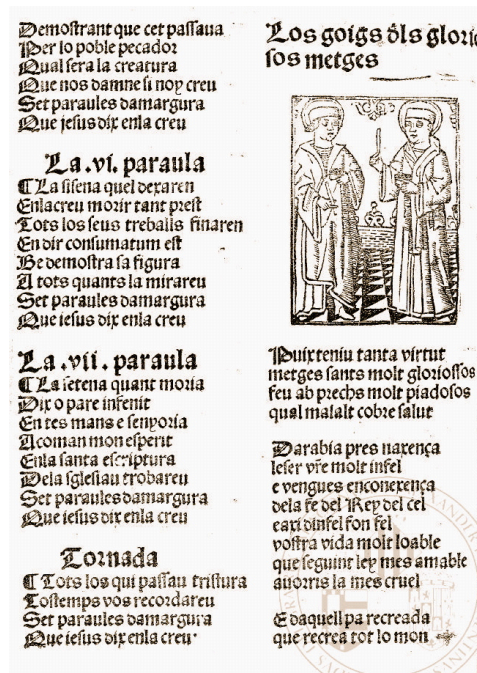 Demostrant que cet passaua
Per lo poble pecador
Qual sera la creatura
Que nos damne si noy creu
Set paraules damargura
Que jesus dix enla creu
La .vi. paraula
¶ La sisena quel dexaren
Enlacreu morir tant prest
Tots los seus treballs finaren
En dir consumatum est
Be demostra sa figura
A tots quants la mirareu
Set paraules damargura
Que iesus dix enla creu
La .vii. paraula
¶ La setena quant moria
Dix o pare infenit
En tes mans e senyoria
Acoman mon esperit
Enla santa escriptura
Dela sglesiau trobareu
Set paraules damargura
Que iesus dix enla creu
Tornada
¶ Tots los qui passau tristura
Tostemps vos recordareu
Set paraules damargura
Que iesus dix enla creu·
Los goigs dls glorio
sos metges
Puix teniu tanta virtut
metges sants molt gloriossos
feu ab prechs molt piadosos
qual malalt cobre salut
Darabia pres naxença
leser vr̃e molt infel
e vengues enconexença
dela fe del Rey del cel
eaxi dinfel fon fel
vostra vida molt loable
que seguint ley mes amable
auorris la mes cruel
E daquell pa recreada
que recrea tot lo mon